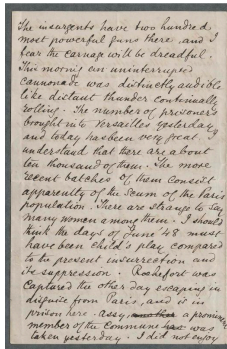 The insurgents have two hundred
most powerful guns there, and I
fear the carnage will be dreadful.
This morning an uninterrupted
cannonade was distinctly audible
like distant thunder continually
rolling. The number of prisoners
brought into Versailles yesterday
and today has been very great. I
understand that there are about
ten thousand of them. The more
recent batches of them consist
apparently of the scum of the Paris
population. There are strange to say
many women among them. I should
think the days of June '48 must
have been child's play compared
to the present insurrection and
its suppression. Rochefort was
captured the other day escaping in
disguise from Paris, and is in
prison here. Assy, a prominent
member of the Commune was
taken yesterday. I did not enjoy